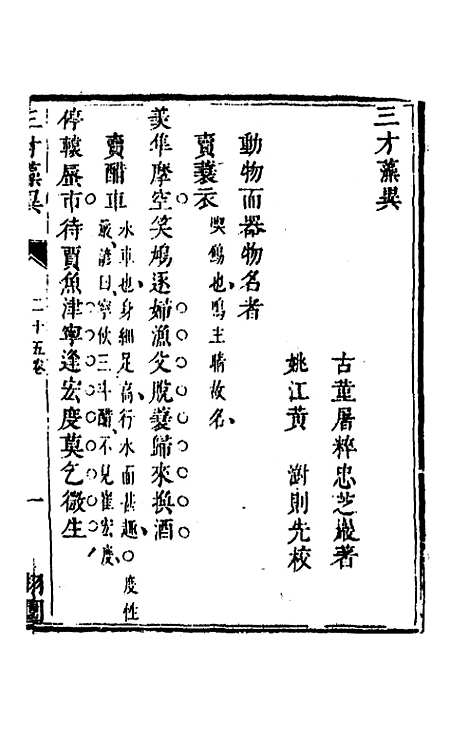 三才藻異
古董屠粹忠芝巖著
姚江黄 澍則先校
動物而器物名者
賣蓑衣
奧鷚也鳴主晴故名
羨隼摩空笑鳩逐婦漁父脫蓑歸來換酒
賣醋車
水車也身細足高行水面甚趣○度性
嚴諺曰寧飲三斗醋不見崔宏度
停轅蜃市待賈魚津寧逢宏度莫乞微生
三才藻異 二十五卷 一